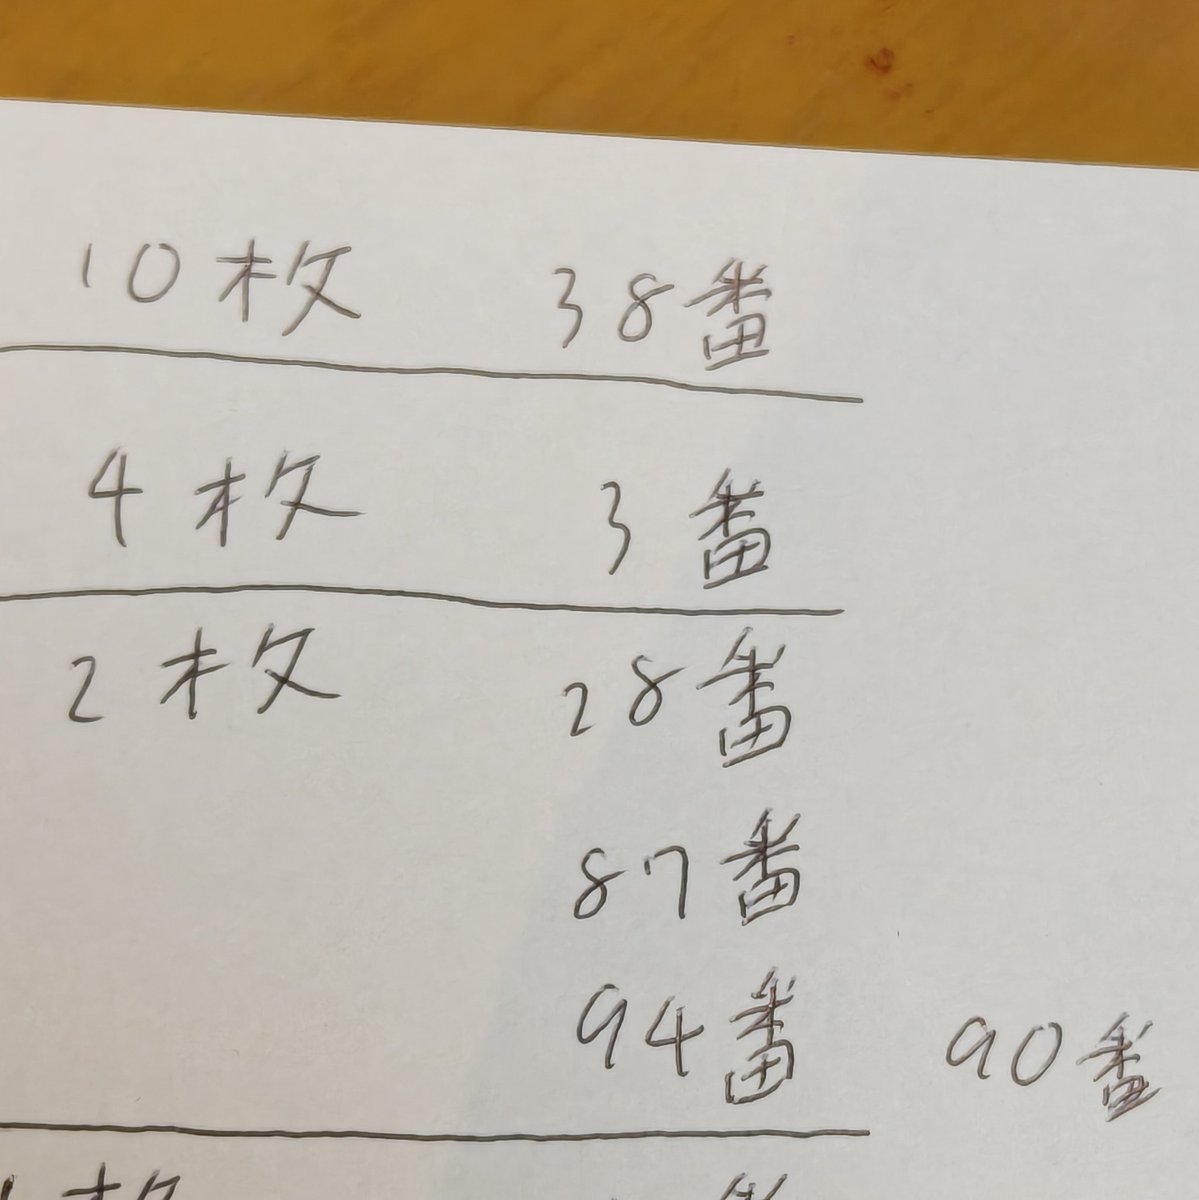 10枚 38番
4枚 3番
2枚 28番
87番
94番 90番